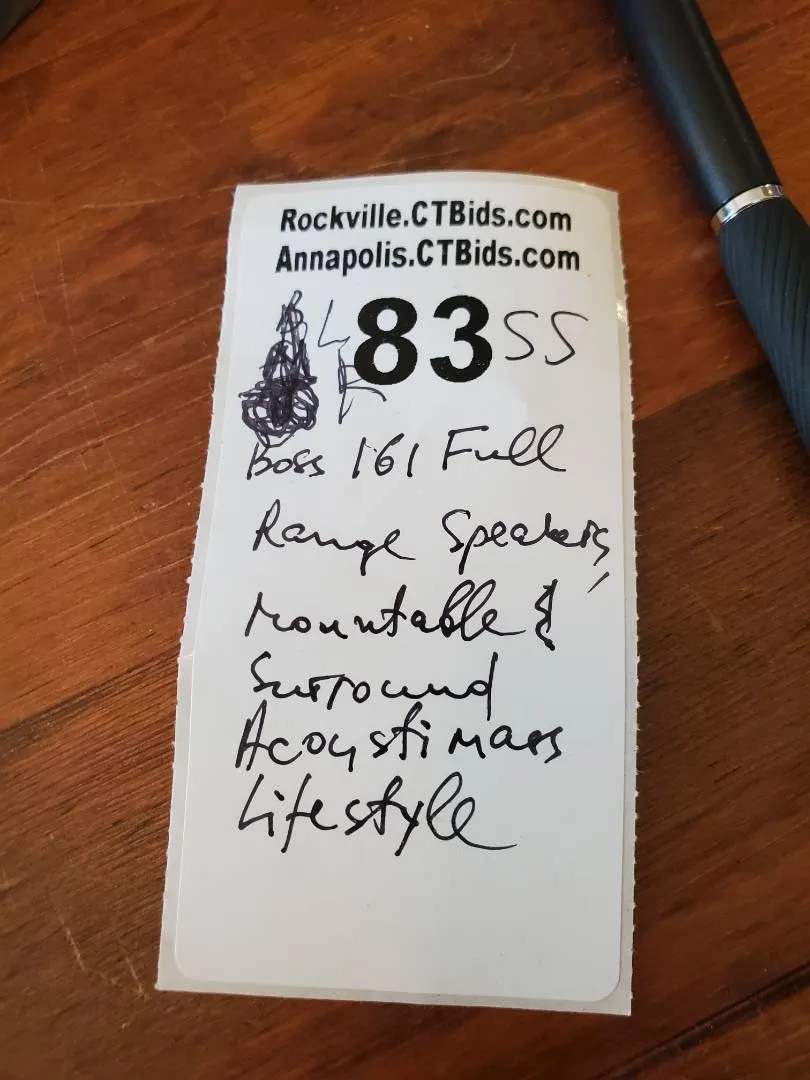 Rockville.CTBids.com
Annapolis.CTBids.com
L 83 SS
F
Boss 161 Full
Range Speakers,
Mountable &
Surround
Acoustimass
Lifestyle